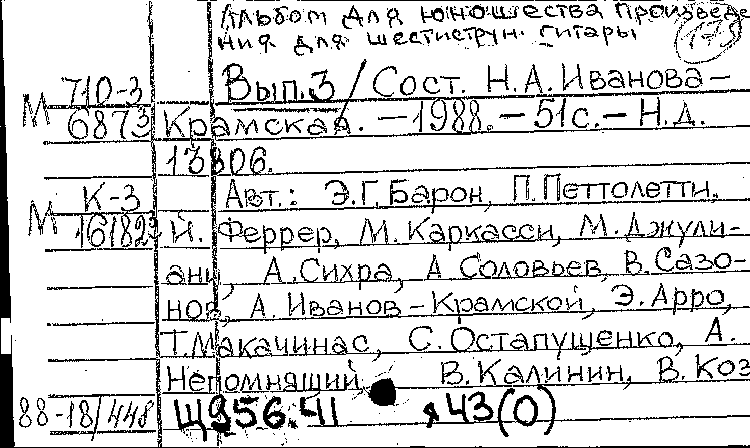 Альбом для юношества Произведе
ния для шестиструн. гитары
Вып.3 / Сост. Н.А.Иванова-
М 710-3
6873 Крамская. — 1988. — 51с. — Н.д.
13806.
М К-3 Авт.: Э.Г.Барон, П.Петтолетти,
161823 Й. Феррер, М.Каркасси, М.Джули-
ани, А.Сихра, А.Соловьев, В.Сазо-
нов, А.Иванов-Крамской, Э.Арро,
Т.Макачинас, С.Остапущенко, А.
Непомнящий, В.Калинин, В.Коз
88-18/448 Щ956.41 я43(0)